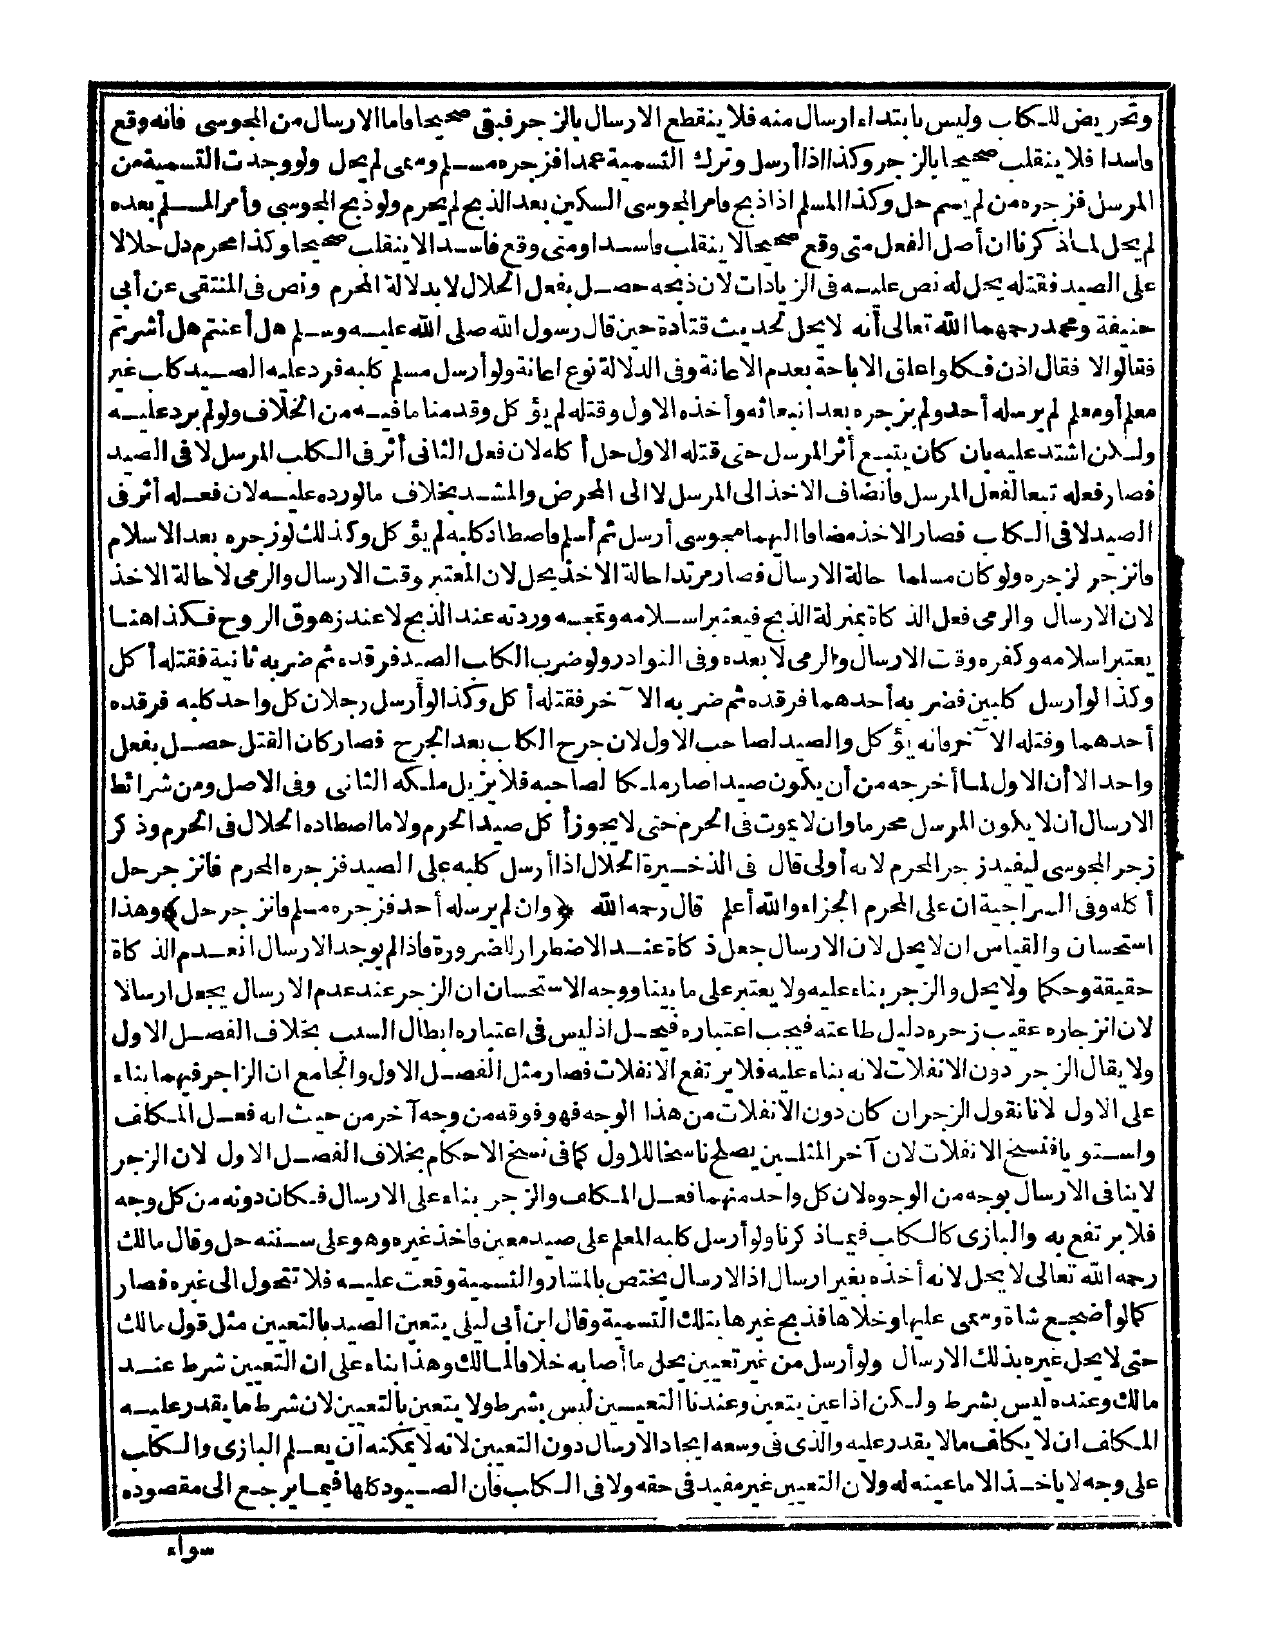 وتحريض للكلب وليس بابتداء ارسال منه فلا ينقطع الارسال بالزجر فبقى صحيحا فاما الارسال من المجوسى فانه وقع
فاسدا فلا ينقلب صحيحا بالزجر وكذا اذا أرسل وترك التسمية عمدا فزجره مسلم وسمى لم يحل ولو وجدت التسمية من
المرسل فزجره من لم يسم حل وكذا المسلم اذا ذبح فامر المجوسى السكين بعد الذبح لم يحرم ولو ذبح المجوسى وأمر المسلم بعده
لم يحل لما ذكرنا ان أصل الفعل متى وقع صحيحا لا ينقلب فاسدا ومتى وقع فاسدا لا ينقلب صحيحا وكذا محرم دل حلالا
على الصيد فقتله يحل له نص عليه فى الزيادات لان ذبحه حصل بفعل الحلال لا بدلالة المحرم ونص فى المنتقى عن أبى
حنيفة ومحمد رحمهما الله تعالى أنه لا يحل لحديث قتادة حين قال رسول الله صلى الله عليه وسلم هل أعنتم هل أشرتم
فقالوا لا فقال اذن فكلوا علق الاباحة بعدم الاعانة وفى الدلالة نوع اعانة ولو أرسل مسلم كلبه فرد عليه الصيد كلب غير
معلم أو معلم لم يرسله أحد ولم يزجره بعد انبعاثه وأخذه الاول وقتله لم يؤكل وقد منا ما فيه من الخلاف ولو لم يرد عليه
ولكن اشتد عليه بان كان يتبع أثر المرسل حتى قتله الاول حل أكله لان فعل الثانى أثر فى الكلب المرسل لا فى الصيد
فصار فعله تبعا لفعل المرسل فانضاف الاخذ الى المرسل لا الى المحرض والمشد بخلاف ما لو رده عليه لان فعله أثر فى
الصيد لا فى الكلب فصار الاخذ مضافا اليهما مجوسى أرسل ثم أسلم فاصطاد كلبه لم يؤكل وكذلك لو زجره بعد الاسلام
فانزجر لزجره ولو كان مسلما حالة الارسال فصار مرتدا حالة الاخذ يحل لان المعتبر وقت الارسال والرمى لا حالة الاخذ
لان الارسال والرمى فعل الذكاة بمنزلة الذبح فيعتبر اسلامه وتمجسه وردته عند الذبح لا عند زهوق الروح فكذا هنا
يعتبر اسلامه وكفره وقت الارسال والرمى لا بعده وفى النوادر ولو ضرب الكلب الصيد فرقده ثم ضربه ثانية فقتله أكل
وكذا لو أرسل كلبين فضربه أحدهما فرقده ثم ضربه الآخر فقتله أكل وكذا لو أرسل رجلان كل واحد كلبه فرقده
أحدهما وقتله الآخر فانه يؤكل والصيد لصاحب الاول لان جرح الكلب بعد الجرح فصار كان القتل حصل بفعل
واحد الا أن الاول لما أخرجه من أن يكون صيدا صار ملكا لصاحبه فلا يزيل ملكه الثانى وفى الاصل ومن شرائط
الارسال أن لا يكون المرسل محرما وان لا يموت فى الحرم حتى لا يجوز أكل صيد الحرم ولا ما اصطاده الحلال فى الحرم وذكر
زجر المجوسى ليفيد زجر المحرم لانه أولى قال فى الذخيرة الحلال اذا أرسل كلبه على الصيد فزجره المحرم فانزجر حل
أكله وفى السراجية ان على المحرم الجزاء والله أعلم قال رحمه الله ﴿وان لم يرسله أحد فزجره مسلم فانزجر حل﴾ وهذا
استحسان والقياس ان لا يحل لان الارسال جعل ذكاة عند الاضطرار للضرورة فاذا لم يوجد الارسال انعدم الذكاة
حقيقة وحكما ولا يحل والزجر بناء عليه ولا يعتبر على ما بينا ووجه الاستحسان ان الزجر عند عدم الارسال يجعل ارسالا
لان انزجاره عقيب زجره دليل طاعته فيجب اعتباره فيحل اذ ليس فى اعتباره ابطال السبب بخلاف الفصل الاول
ولا يقال الزجر دون الانفلات لانه بناء عليه فلا يرتفع الانفلات فصار مثل الفصل الاول والجامع ان الزاجر فيهما بناء
على الاول لانا نقول الزجر ان كان دون الانفلات من هذا الوجه فهو فوقه من وجه آخر من حيث انه فعل المكلف
واستويا فنسخ الانفلات لان آخر المثلين يصلح ناسخا للاول كما فى نسخ الاحكام بخلاف الفصل الاول لان الزجر
لا ينافى الارسال بوجه من الوجوه لان كل واحد منهما فعل المكلف والزجر بناء على الارسال فكان دونه من كل وجه
فلا يرتفع به والبازى كالكلب فيما ذكرنا ولو أرسل كلبه المعلم على صيد معين فاخذ غيره وهو على سننه حل وقال مالك
رحمه الله تعالى لا يحل لانه أخذه بغير ارسال اذ الارسال يختص بالمشار والتسمية وقعت عليه فلا تتحول الى غيره فصار
كما لو أضجع شاة وسمى عليها وخلاها فذبح غيرها بتلك التسمية وقال ابن أبى ليلى يتعين الصيد بالتعيين مثل قول مالك
حتى لا يحل غيره بذلك الارسال ولو أرسل من غير تعيين يحل ما أصابه خلافا لمالك وهذا بناء على ان التعيين شرط عند
مالك وعنده ليس بشرط ولكن اذا عين يتعين وعندنا التعيين ليس بشرط ولا يتعين بالتعيين لان شرط ما يقدر عليه
المكلف ان لا يكلف ما لا يقدر عليه والذى فى وسعه ايجاد الارسال دون التعيين لانه لا يمكنه أن يعلم البازى والكلب
على وجه لا ياخذ الا ما عينه له ولان التعيين غير مفيد فى حقه ولا فى الكلب فأن الصيود كلها فيما يرجع الى مقصوده
سواء